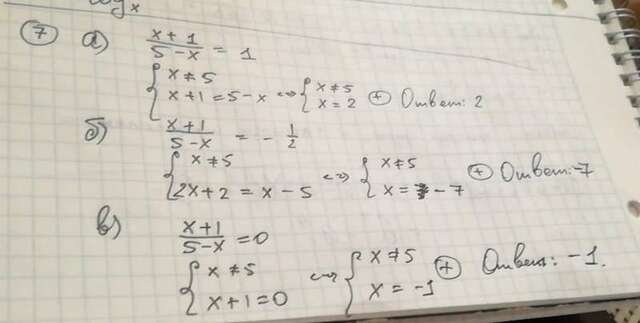 log x
7 а) x+1/5-x = 1
{ x≠5 x+1=5-x ⇔ { x≠5 x=2 ⊕ Ответ: 2
б) x+1/5-x = -1/2
{ x≠5 2x+2=x-5 ⇔ { x≠5 x=-7 ⊕ Ответ:-7
в) x+1/5-x =0
{ x≠5 x+1=0 ⇔ { x≠5 x=-1 ⊕ Ответ: -1.